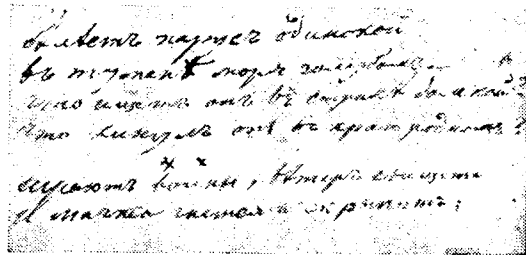 бѣлѣетъ парусъ одинокой
въ туманѣ моря голубомъ.
что ищетъ онъ въ странѣ далекой?
что кинулъ онъ въ краю родномъ?
играютъ волны, вѣтеръ свищетъ
И мачта гнется и скрыпитъ;